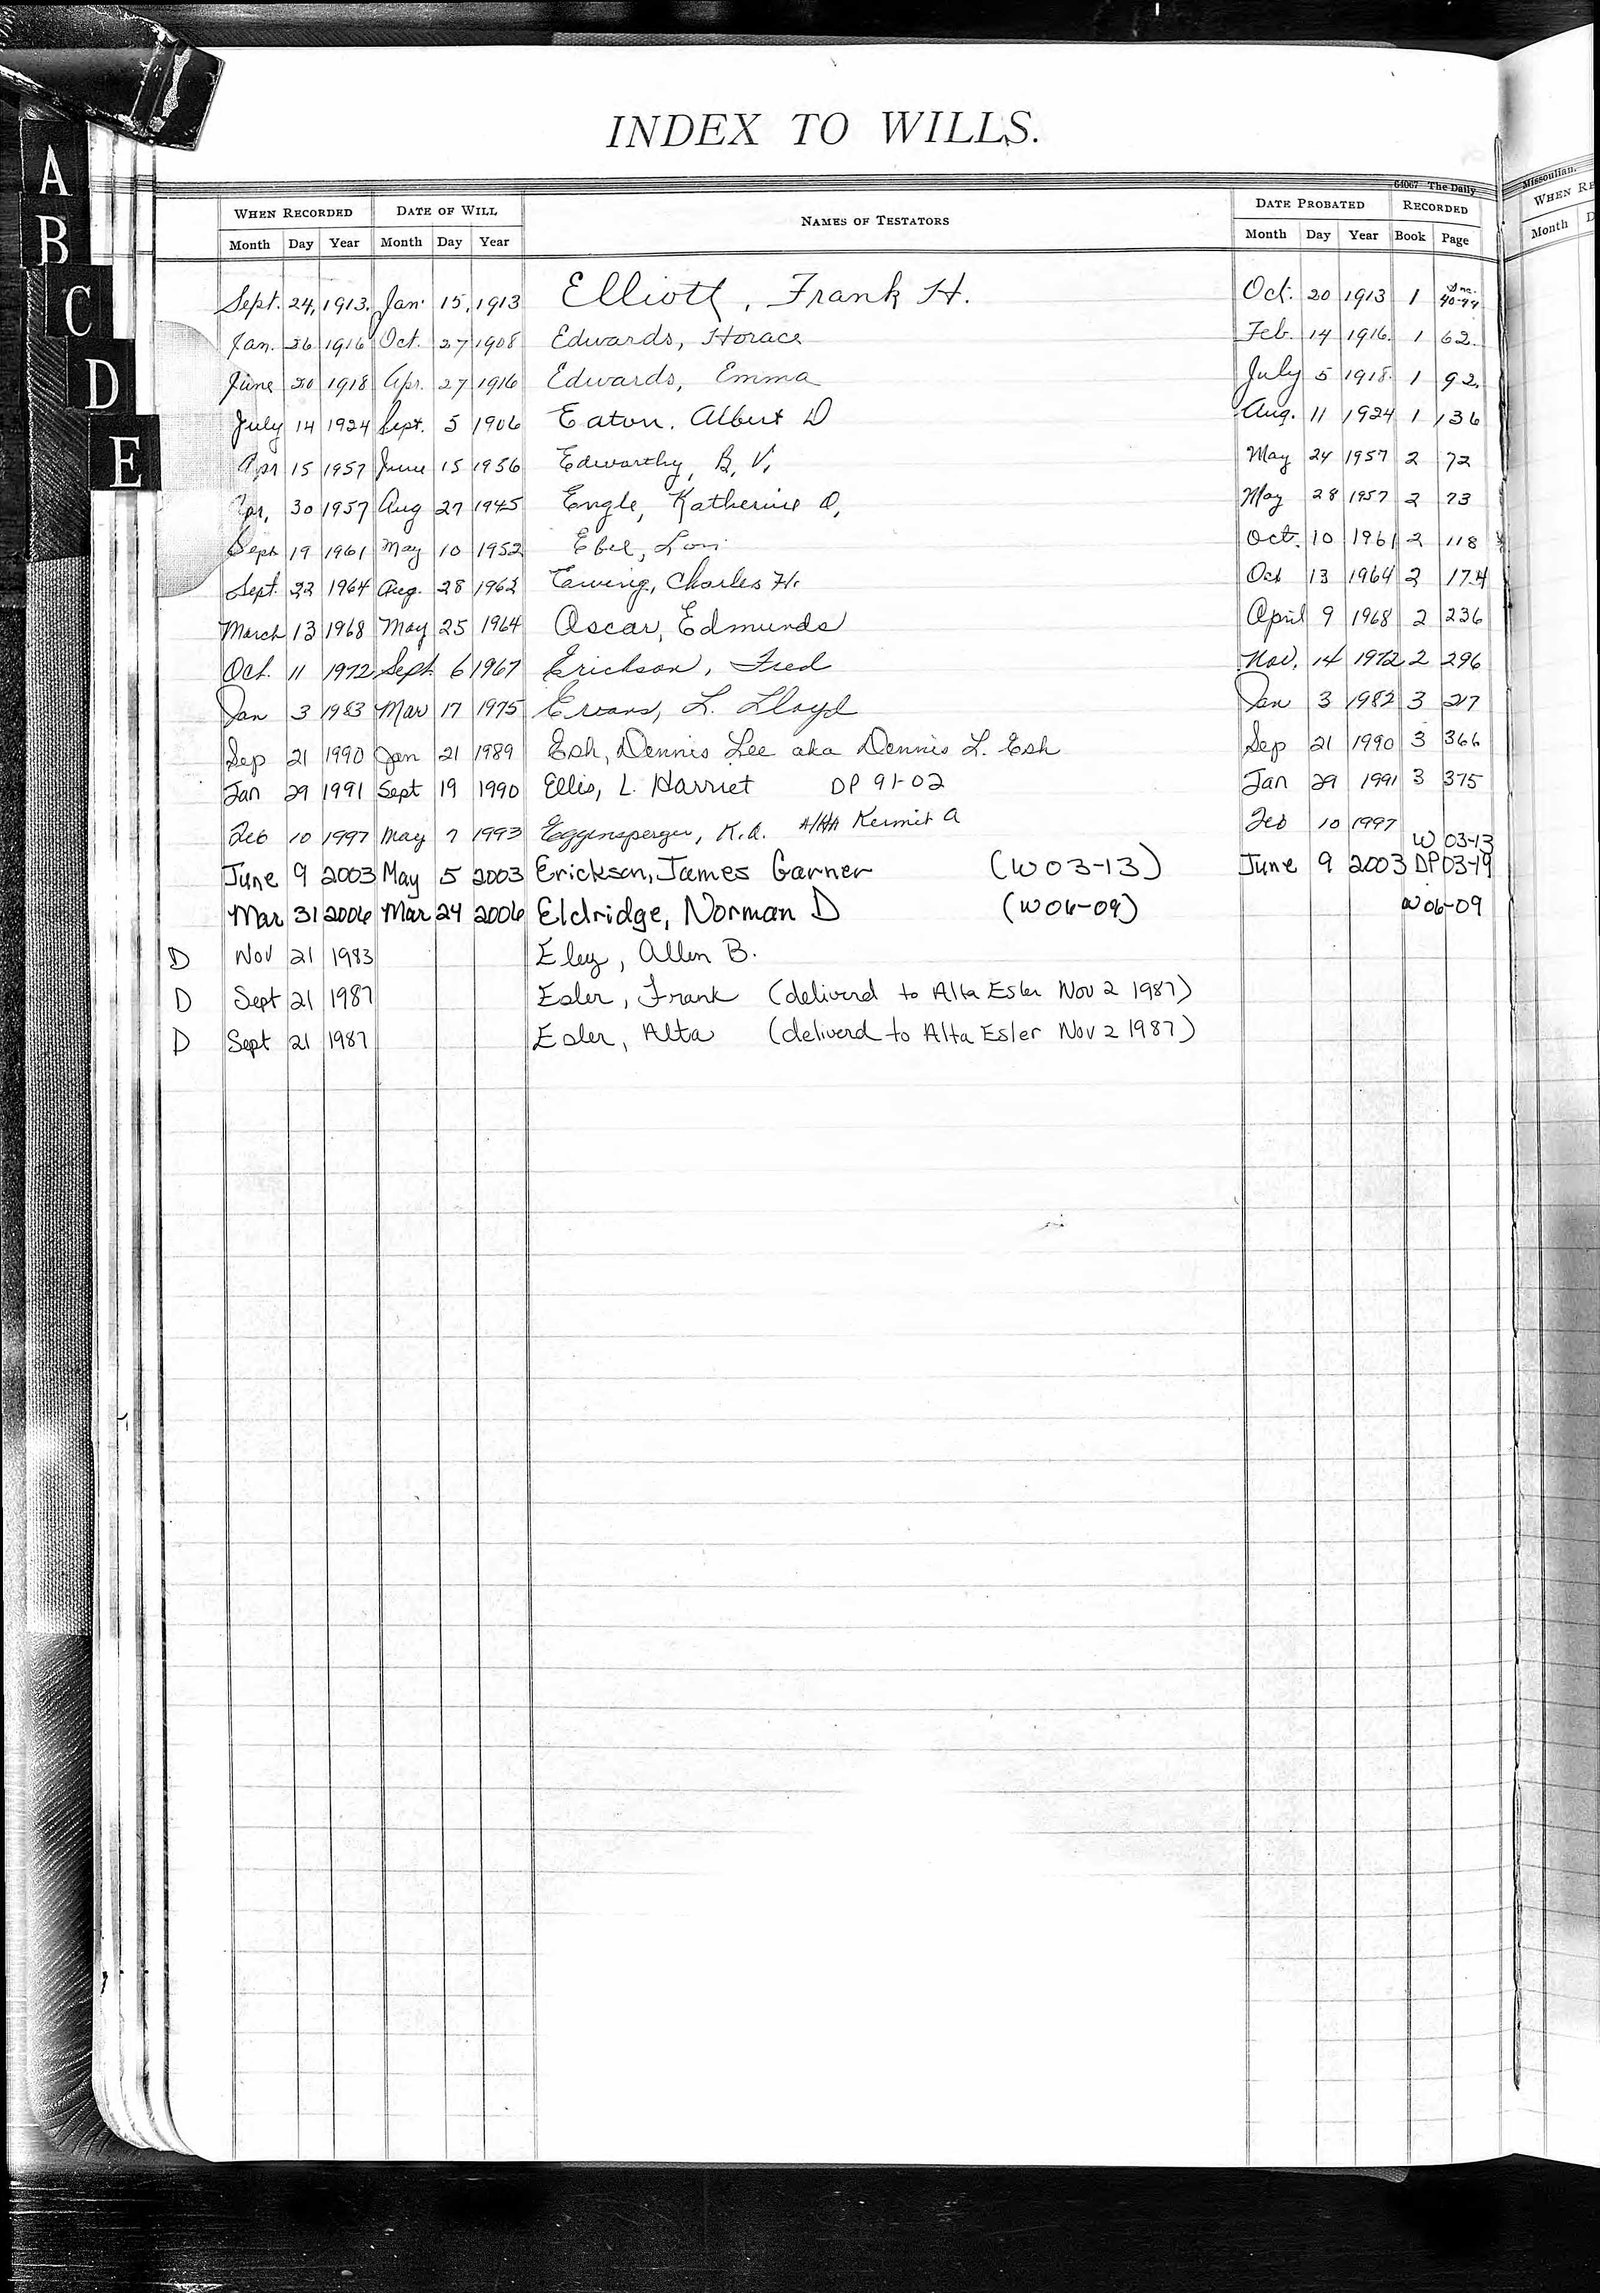 A
B
C
D
E
INDEX TO WILLS.
64067 The Daily
Missoulian.
WHEN RECORDED DATE OF WILL NAMES OF TESTATORS DATE PROBATED RECORDED
Month Day Year Month Day Year Month Day Year Book Page
WHEN RE
Month D
Sept. 24, 1913. Jan. 15, 1913 Elliott, Frank H. Oct. 20 1913 1 Inc. 40-44
Jan. 26 1916 Oct. 27 1908 Edwards, Horace Feb. 14 1916. 1 62.
June 20 1918 Apr. 27 1916 Edwards, Emma July 5 1918. 1 92.
July 14 1924 Sept. 5 1906 Eaton. Albert D Aug. 11 1924 1 136
Apr 15 1957 June 15 1956 Edworthy, B. V. May 24 1957 2 72
Apr. 30 1957 Aug 27 1945 Engle, Katherine O. May 28 1957 2 73
Sept 19 1961 May 10 1952 Ebel, Oct. 10 1961 2 118
Sept. 22 1964 Aug. 28 1962 Ewing, Charles H. Oct 13 1964 2 174
March 13 1968 May 25 1964 Oscar, Edmunds April 9 1968 2 236
Oct. 11 1972 Sept. 6 1967 Erickson, Fred Nov. 14 1972 2 296
Jan 3 1983 Mar 17 1975 Evans, L. Lloyd Jan 3 1982 3 217
Sep 21 1990 Jan 21 1989 Esh, Dennis Lee aka Dennis L. Esh Sep 21 1990 3 366
Jan 29 1991 Sept 19 1990 Ellis, L. Harriet DP 91-02 Jan 29 1991 3 375
Feb 10 1997 May 7 1993 Eggensperger, K.A. A/K/A Kermit A Feb 10 1997
W 03-13
June 9 2003 May 5 2003 Erickson, James Garner (W03-13) June 9 2003 DP 03-19
Mar 31 2006 Mar 24 2006 Eldridge, Norman D (W06-09) W06-09
D Nov 21 1983 Eley, Allen B.
D Sept 21 1987 Esler, Frank (deliverd to Alta Esler Nov 2 1987)
D Sept 21 1987 Esler, Alta (deliverd to Alta Esler Nov 2 1987)